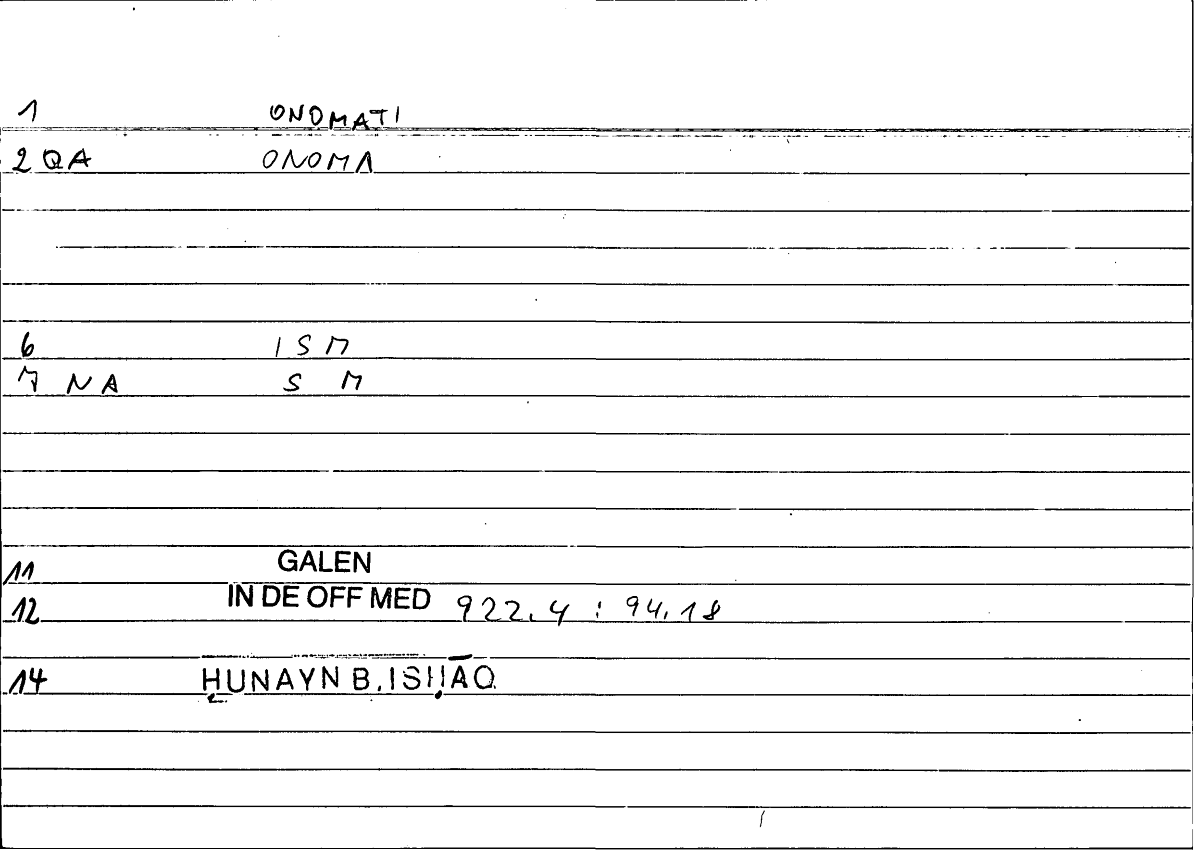 1 ONOMATI
2 QA ONOMA
6 ISM
7 NA S M
11 GALEN
12 IN DE OFF MED 922.4 : 94.18
14 ḤUNAYN B. ISḤĀQ